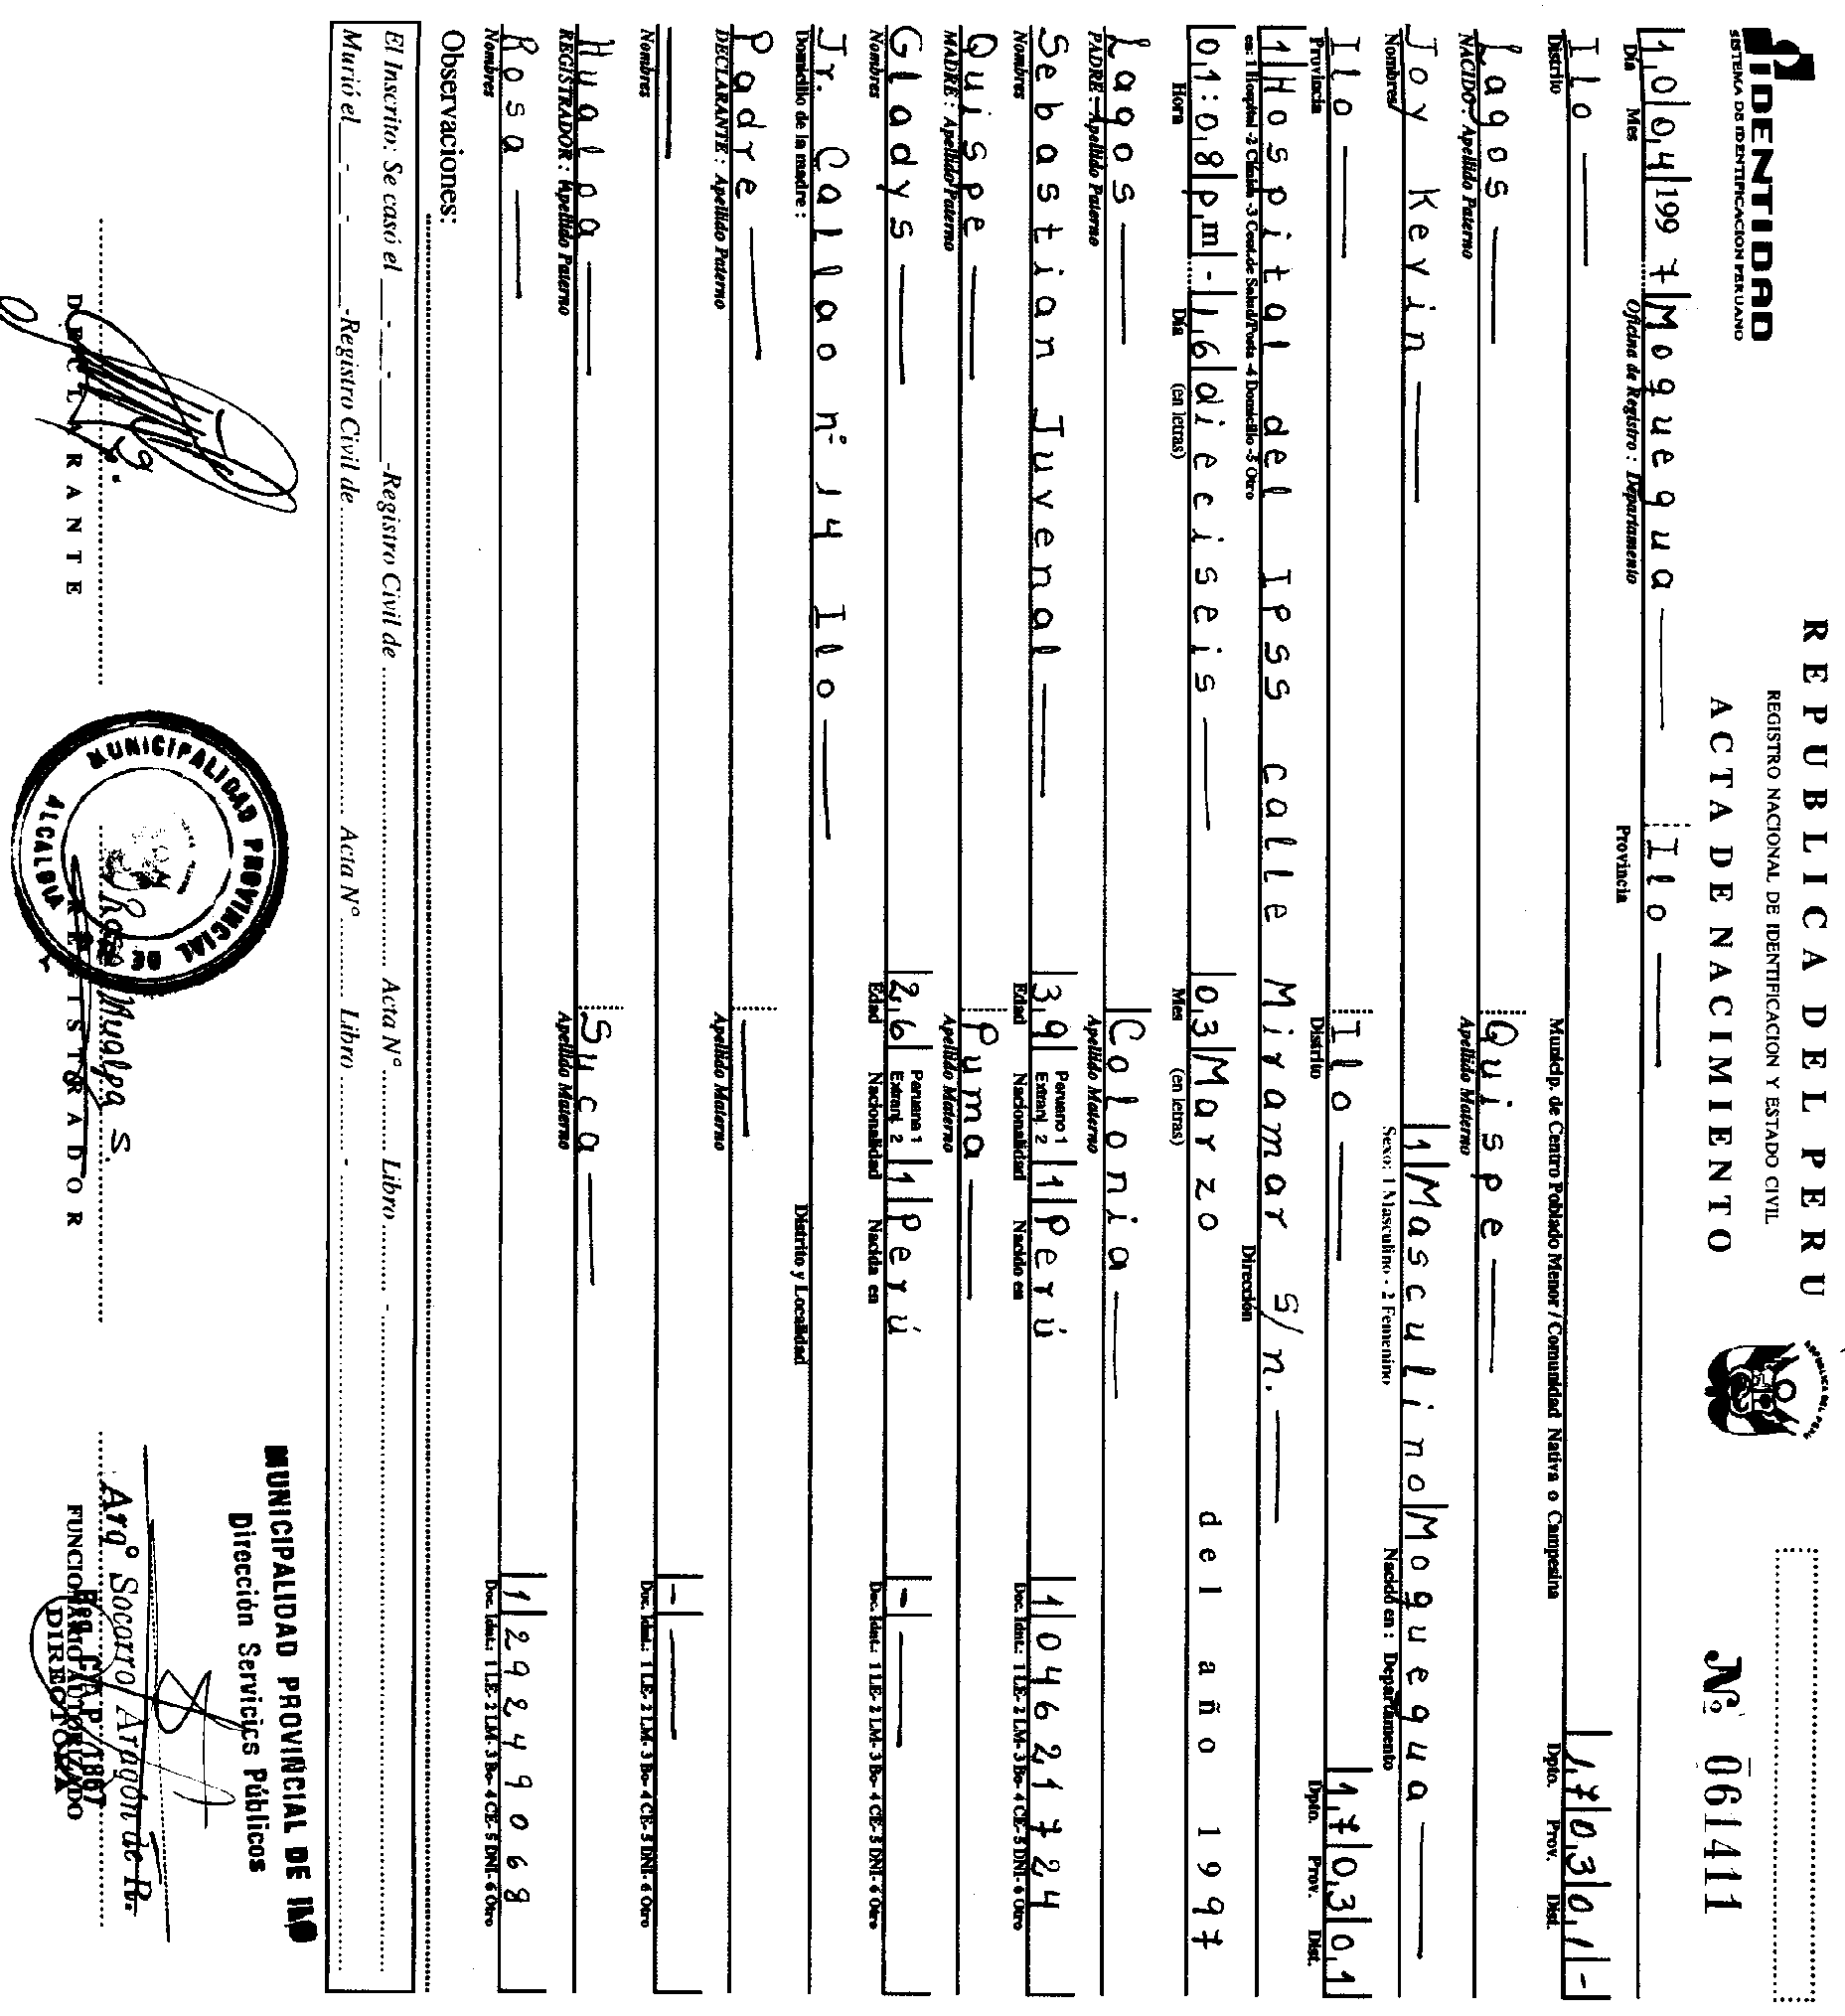 REPUBLICA DEL PERU
REGISTRO NACIONAL DE IDENTIFICACION Y ESTADO CIVIL
IDENTIDAD
SISTEMA DE IDENTIFICACION PERUANO
ACTA DE NACIMIENTO
REPUBLICA DEL PERU
Nº 061411
10 04 1997 Moquegua Ilo
Día Mes Oficina de Registro : Departamento Provincia
Ilo 17 03 01 -
Distrito Municip. de Centro Poblado Menor / Comunidad Nativa o Campesina Dpto. Prov. Dist.
Lagos Quispe
NACIDO : Apellido Paterno Apellido Materno
Joy Kevin 1 Masculino Moquegua
Nombres Sexo: 1 Masculino - 2 Femenino Nacido en : Departamento
Ilo Ilo 17 03 01
Provincia Distrito Dpto. Prov. Dist.
1 Hospital del IPSS calle Miramar s/n.
en: 1 Hospital -2 Clínica -3 Cent.de Salud/Posta -4 Domicilio -5 Otro Dirección
01:08 pm - 16 dieciseis 03 Marzo del año 1997
Hora Día (en letras) Mes (en letras)
Lagos Colonia
PADRE : Apellido Paterno Apellido Materno
Sebastian Juvenal 39 Peruano 1 Extranj. 2 1 Perú 1 04621724
Nombres Edad Nacionalidad Nacido en Doc. Idnt.: 1 LE- 2 LM- 3 Bo- 4 CE- 5 DNI- 6 Otro
Quispe Puma
MADRE : Apellido Paterno Apellido Materno
Gladys 26 Peruana 1 Extranj. 2 1 Perú -
Nombres Edad Nacionalidad Nacida en Doc. Idnt.: 1 LE- 2 LM- 3 Bo- 4 CE- 5 DNI- 6 Otro
Jr. Callao nº 14 Ilo
Domicilio de la madre : Distrito y Localidad
Padre
DECLARANTE : Apellido Paterno Apellido Materno
-
Nombres Doc. Idnt.: 1 LE- 2 LM- 3 Bo- 4 CE- 5 DNI- 6 Otro
Hualpa Suca
REGISTRADOR : Apellido Paterno Apellido Materno
Rosa 1 29249068
Nombres Doc. Idnt.: 1 LE- 2 LM- 3 Bo- 4 CE- 5 DNI- 6 Otro
Observaciones:
El Inscrito: Se casó el - - -Registro Civil de Acta Nº Libro -
Murió el - - -Registro Civil de Acta Nº Libro -
MUNICIPALIDAD PROVINCIAL DE ILO
Dirección Servicios Públicos
MUNICIPALIDAD PROVINCIAL DE
ALCALDIA
Rosa Hualpa S.
Arqº Socorro Aragón de R.
DECLARANTE REGISTRADOR FUNCIONARIO AUTORIZADO
Reg CAP 1867
DIRECTORA